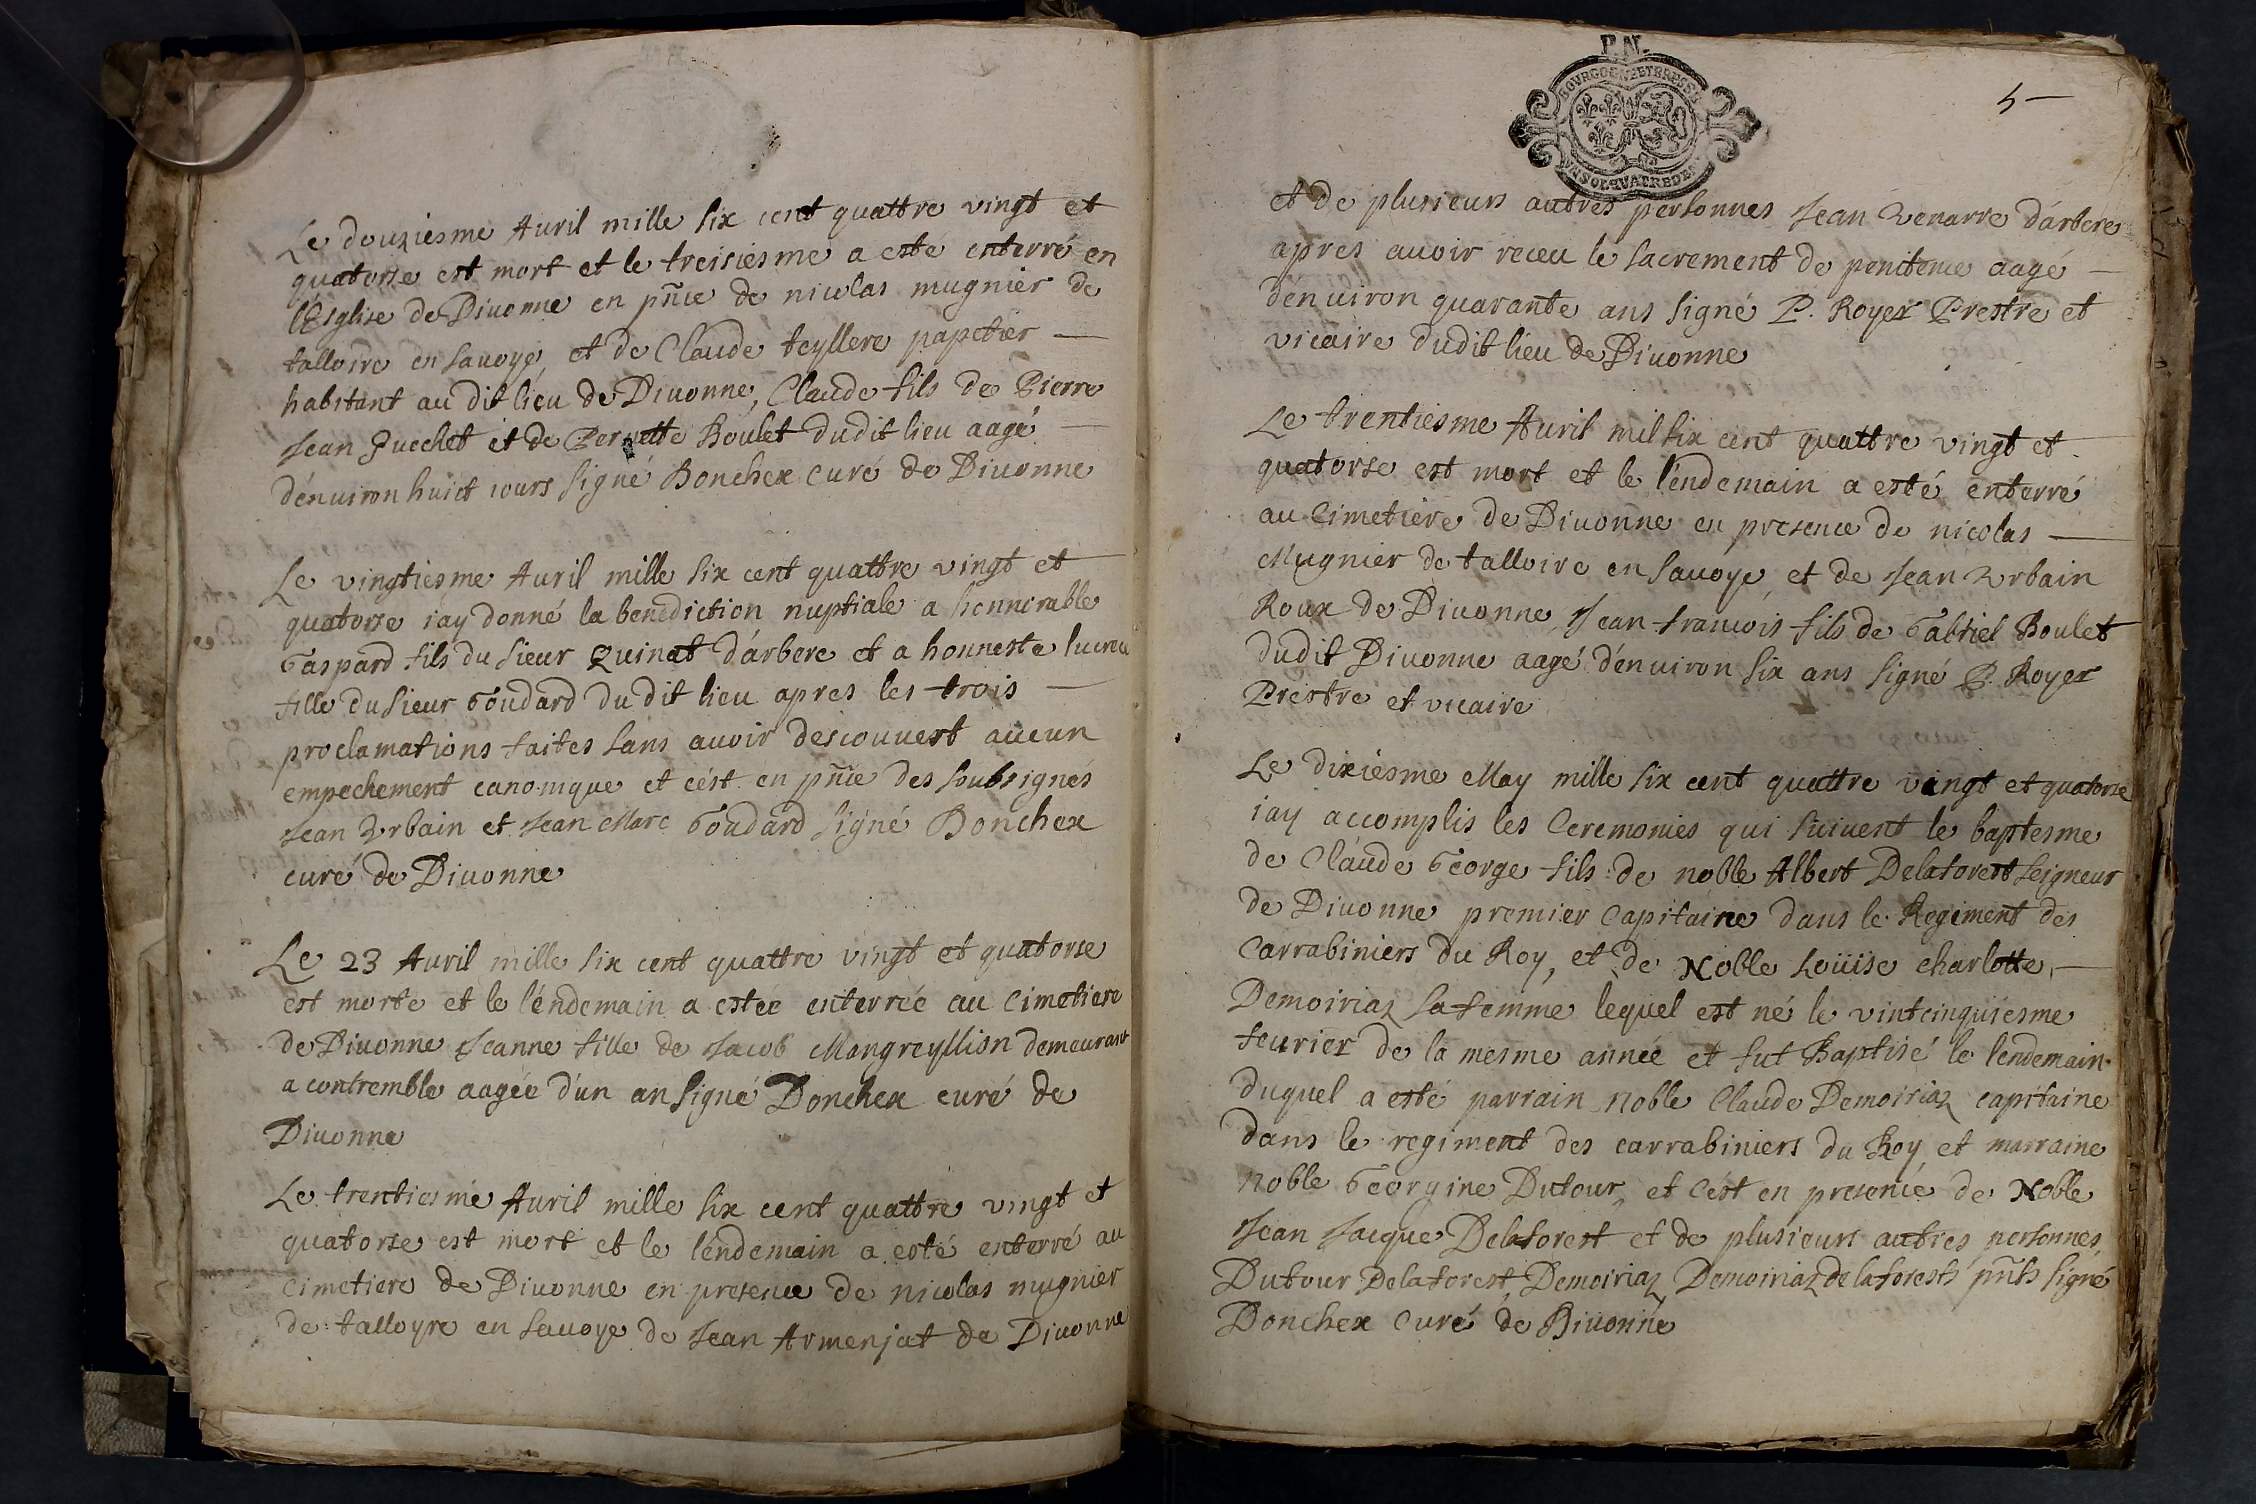 Le douziesme Auril mille six cent quattre vingt et
quatorse est mort et le treisiesme a esté enterré en
l'Esglise de Diuonne en pñce de nicolas mugnier de
talloire en sauoye, et de Claude teyllere papetier
habitant au dit lieu de Diuonne, Claude fils de Pierre
Jean Guechet et de Pernette Boulet dudit lieu aagé
d'énuiron huict iours signé Bonchex curé de Diuonne
Le vingtiesme Auril mille six cent quattre vingt et
quatorse iay donné la benediction nuptiale a honnorable
Gaspard fils du sieur Quinat d'árbere et a honneste lucrece
fille du sieur Goudard du dit lieu apres les trois
proclamations faites sans auoir descouuert aucun
empechement canonique et cést en pñce des soubsignés
Jean Vrbain et Jean Marc Goudard signé Bonchex
curé de Diuonne
Le 23 Auril mille six cent quattre vingt et quatorse
est morte et le léndemain a estée enterrée au cimetiere
de Diuonne Jeanne fille de Jacob Mangreyllion demeurant
a contremble aagée d'un an signé Bonchex curé de
Diuonne
Le trentiesme Auril mille six cent quattre vingt et
quatorse est mort et le léndemain a esté enterré au
cimetiere de Diuonne en presence de nicolas mugnier
de talloyre en sauoye de Jean Armenjat de Diuonne
P.N.
BOVRGOGNE ET BRESSE
VN SOL QVATRE DE.
5
et de plusieurs autres personnes Jean Venarre d'árbere
apres auoir receu le sacrement de penitence aagé
d'énuiron quarante ans signé P. Royer Prestre et
vicaire dudit lieu de Diuonne
Le trentiesme Auril mil six cent quattre vingt et
quatorse est mort et le léndemain a esté enterré
au Cimetiere de Diuonne en presence de nicolas
Mugnier de talloire en sauoye, et de Jean Vrbain
Roux de Diuonne, Jean francois fils de Gabriel Boulet
dudit Diuonne aagé d'énuiron six ans signé P. Royer
Prestre et vicaire
Le dixiesme May mille six cent quattre vingt et quatorse
iay accomplis les Ceremonies qui suiuent le baptesme
de Claude George fils de noble Albert Delaforest seigneur
de Diuonne premier Capitaine dans le Regiment des
Carrabiniers du Roy, et de Noble Loüise charlotte
Demoiriaz sa femme lequel est né le vintcinquiesme
feurier de la mesme année et fut Baptisé le lendemain
duquel a esté parrain noble Claude Demoiriaz capitaine
dans le regiment des carrabiniers du Roy et marraine
noble Georgine Dutour, et c'ést en presence de Noble
Jean Jacque Delaforest et de plusieurs autres personnes
Dutour Delaforest, Demoiriaz Demoiriaz de laforest pñts signé
Bonchex Curé de Diuonne